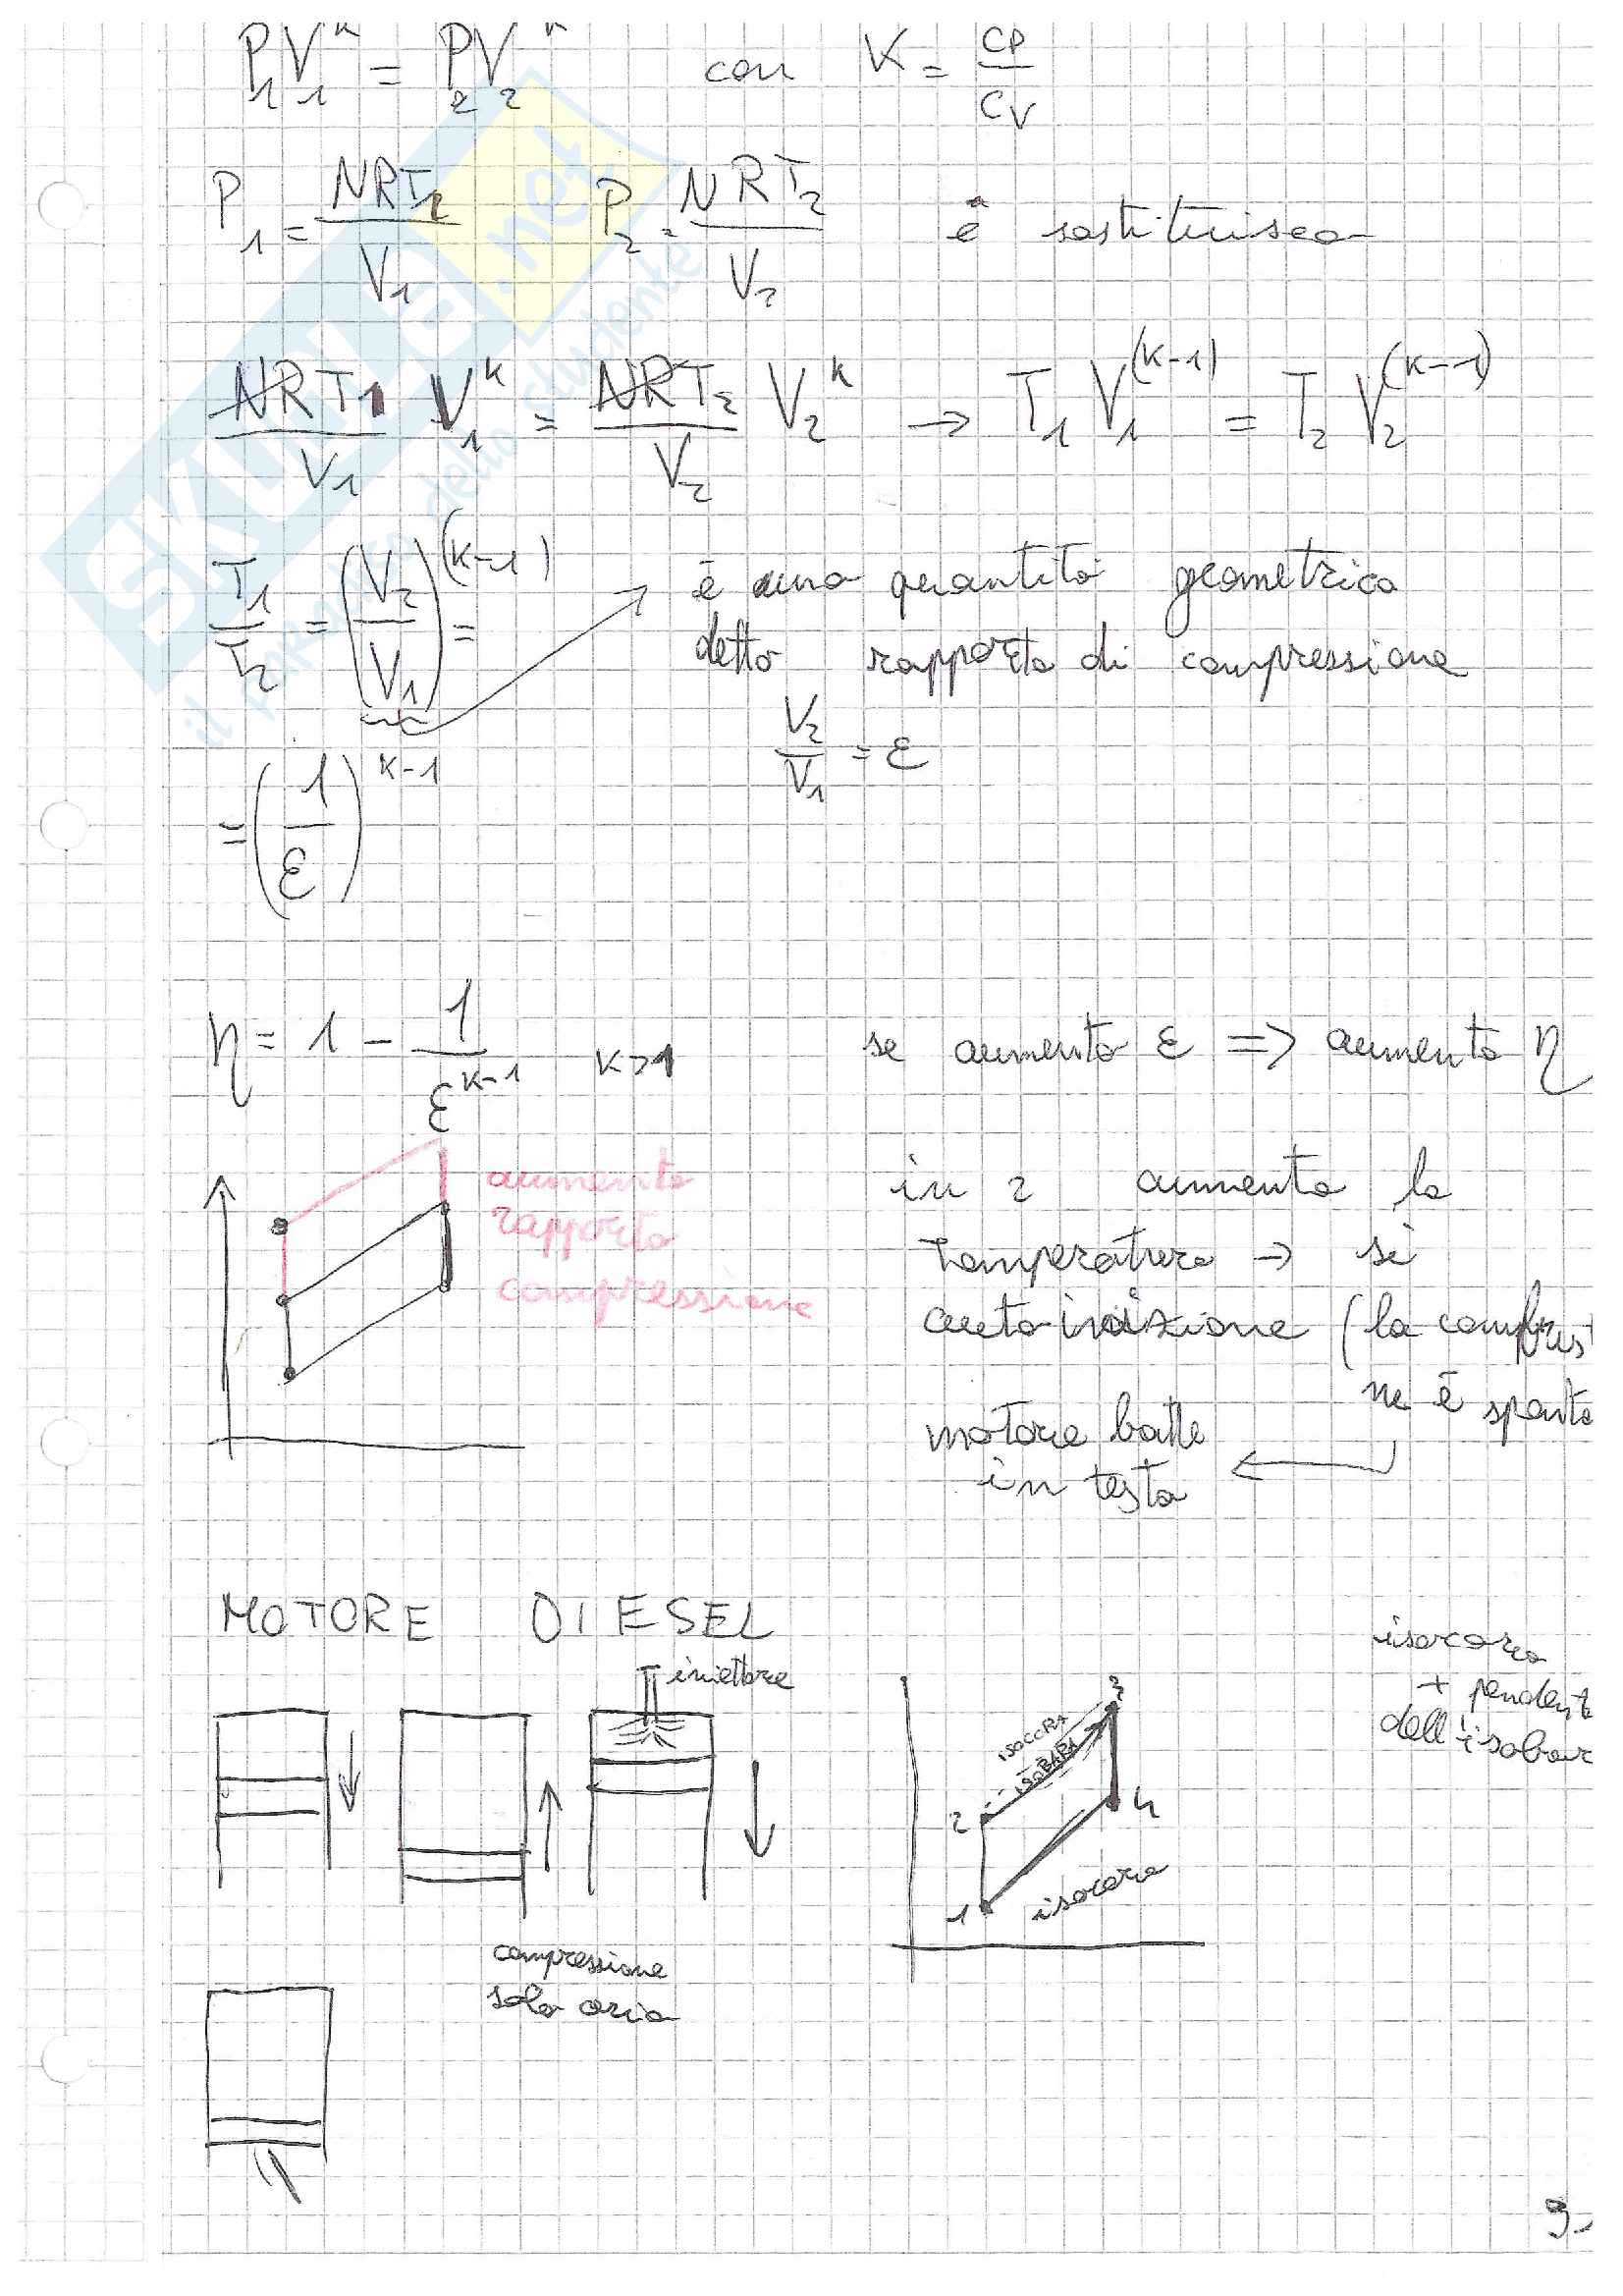 P₁V₁ᵏ = P₂V₂ᵏ con K = cp/cv
P₁ = NRT₁/V₁ P₂ = NRT₂/V₂ e sostituisco
NRT₁/V₁ V₁ᵏ = NRT₂/V₂ V₂ᵏ → T₁V₁^(K-1) = T₂V₂^(K-1)
T₁/T₂ = (V₂/V₁)^(K-1) = → è una quantità geometrica
detto rapporto di compressione
V₂/V₁ = ε
= (1/ε)^K-1
η = 1 - 1/ε^K-1 K>1 se aumento ε => aumenta η
aumento
rapporto
compressione
in 2 aumenta la
temperatura → si
(la combus
ne è sponta
motore batte
in testa
MOTORE DIESEL
iniettore
compressione
solo aria
ISOCORA
ISOBARA
1
2
3
4
isocora
isocora
+ pendent
dell'isobar
9.
SKUOLA.net
il paradiso dello studente